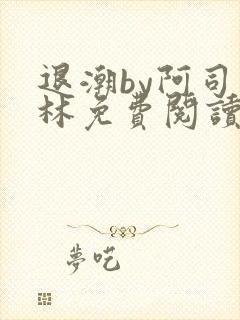 退潮by阿司
林免費閱讀
夢吃